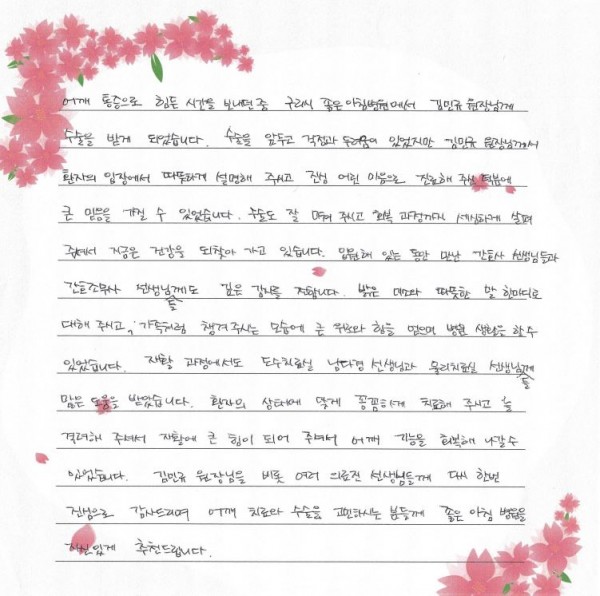 어깨 통증으로 힘든 시간을 보내던 중 구리시 좋은아침병원에서 김민규 원장님께
수술을 받게 되었습니다. 수술을 앞두고 걱정과 두려움이 있었지만 김민규 원장님께서
환자의 입장에서 따뜻하게 설명해 주시고 진심 어린 마음으로 진료해 주신 덕분에
큰 믿음을 가질 수 있었습니다. 수술도 잘 마쳐 주시고 회복 과정까지 세심하게 살펴
주셔서 지금은 건강을 되찾아 가고 있습니다. 입원해 있는 동안 만난 간호사 선생님들과
간호조무사 선생님들께도 깊은 감사를 전합니다. 밝은 미소와 따뜻한 말 한마디로
대해 주시고, 가족처럼 챙겨주시는 모습에 큰 위로와 힘을 얻으며 병원 생활을 할 수
있었습니다. 재활 과정에서도 도수치료실 남다경 선생님과 물리치료실 선생님들께
많은 도움을 받았습니다. 환자의 상태에 맞게 꼼꼼하게 치료해 주시고 늘
격려해 주셔서 재활에 큰 힘이 되어 주셔서 어깨 기능을 회복해 나갈 수
있었습니다. 김민규 원장님을 비롯 여러 의료진 선생님들께 다시 한번
진심으로 감사드리며 어깨 치료와 수술을 고민하시는 분들께 좋은 아침 병원을
자신있게 추천드립니다.